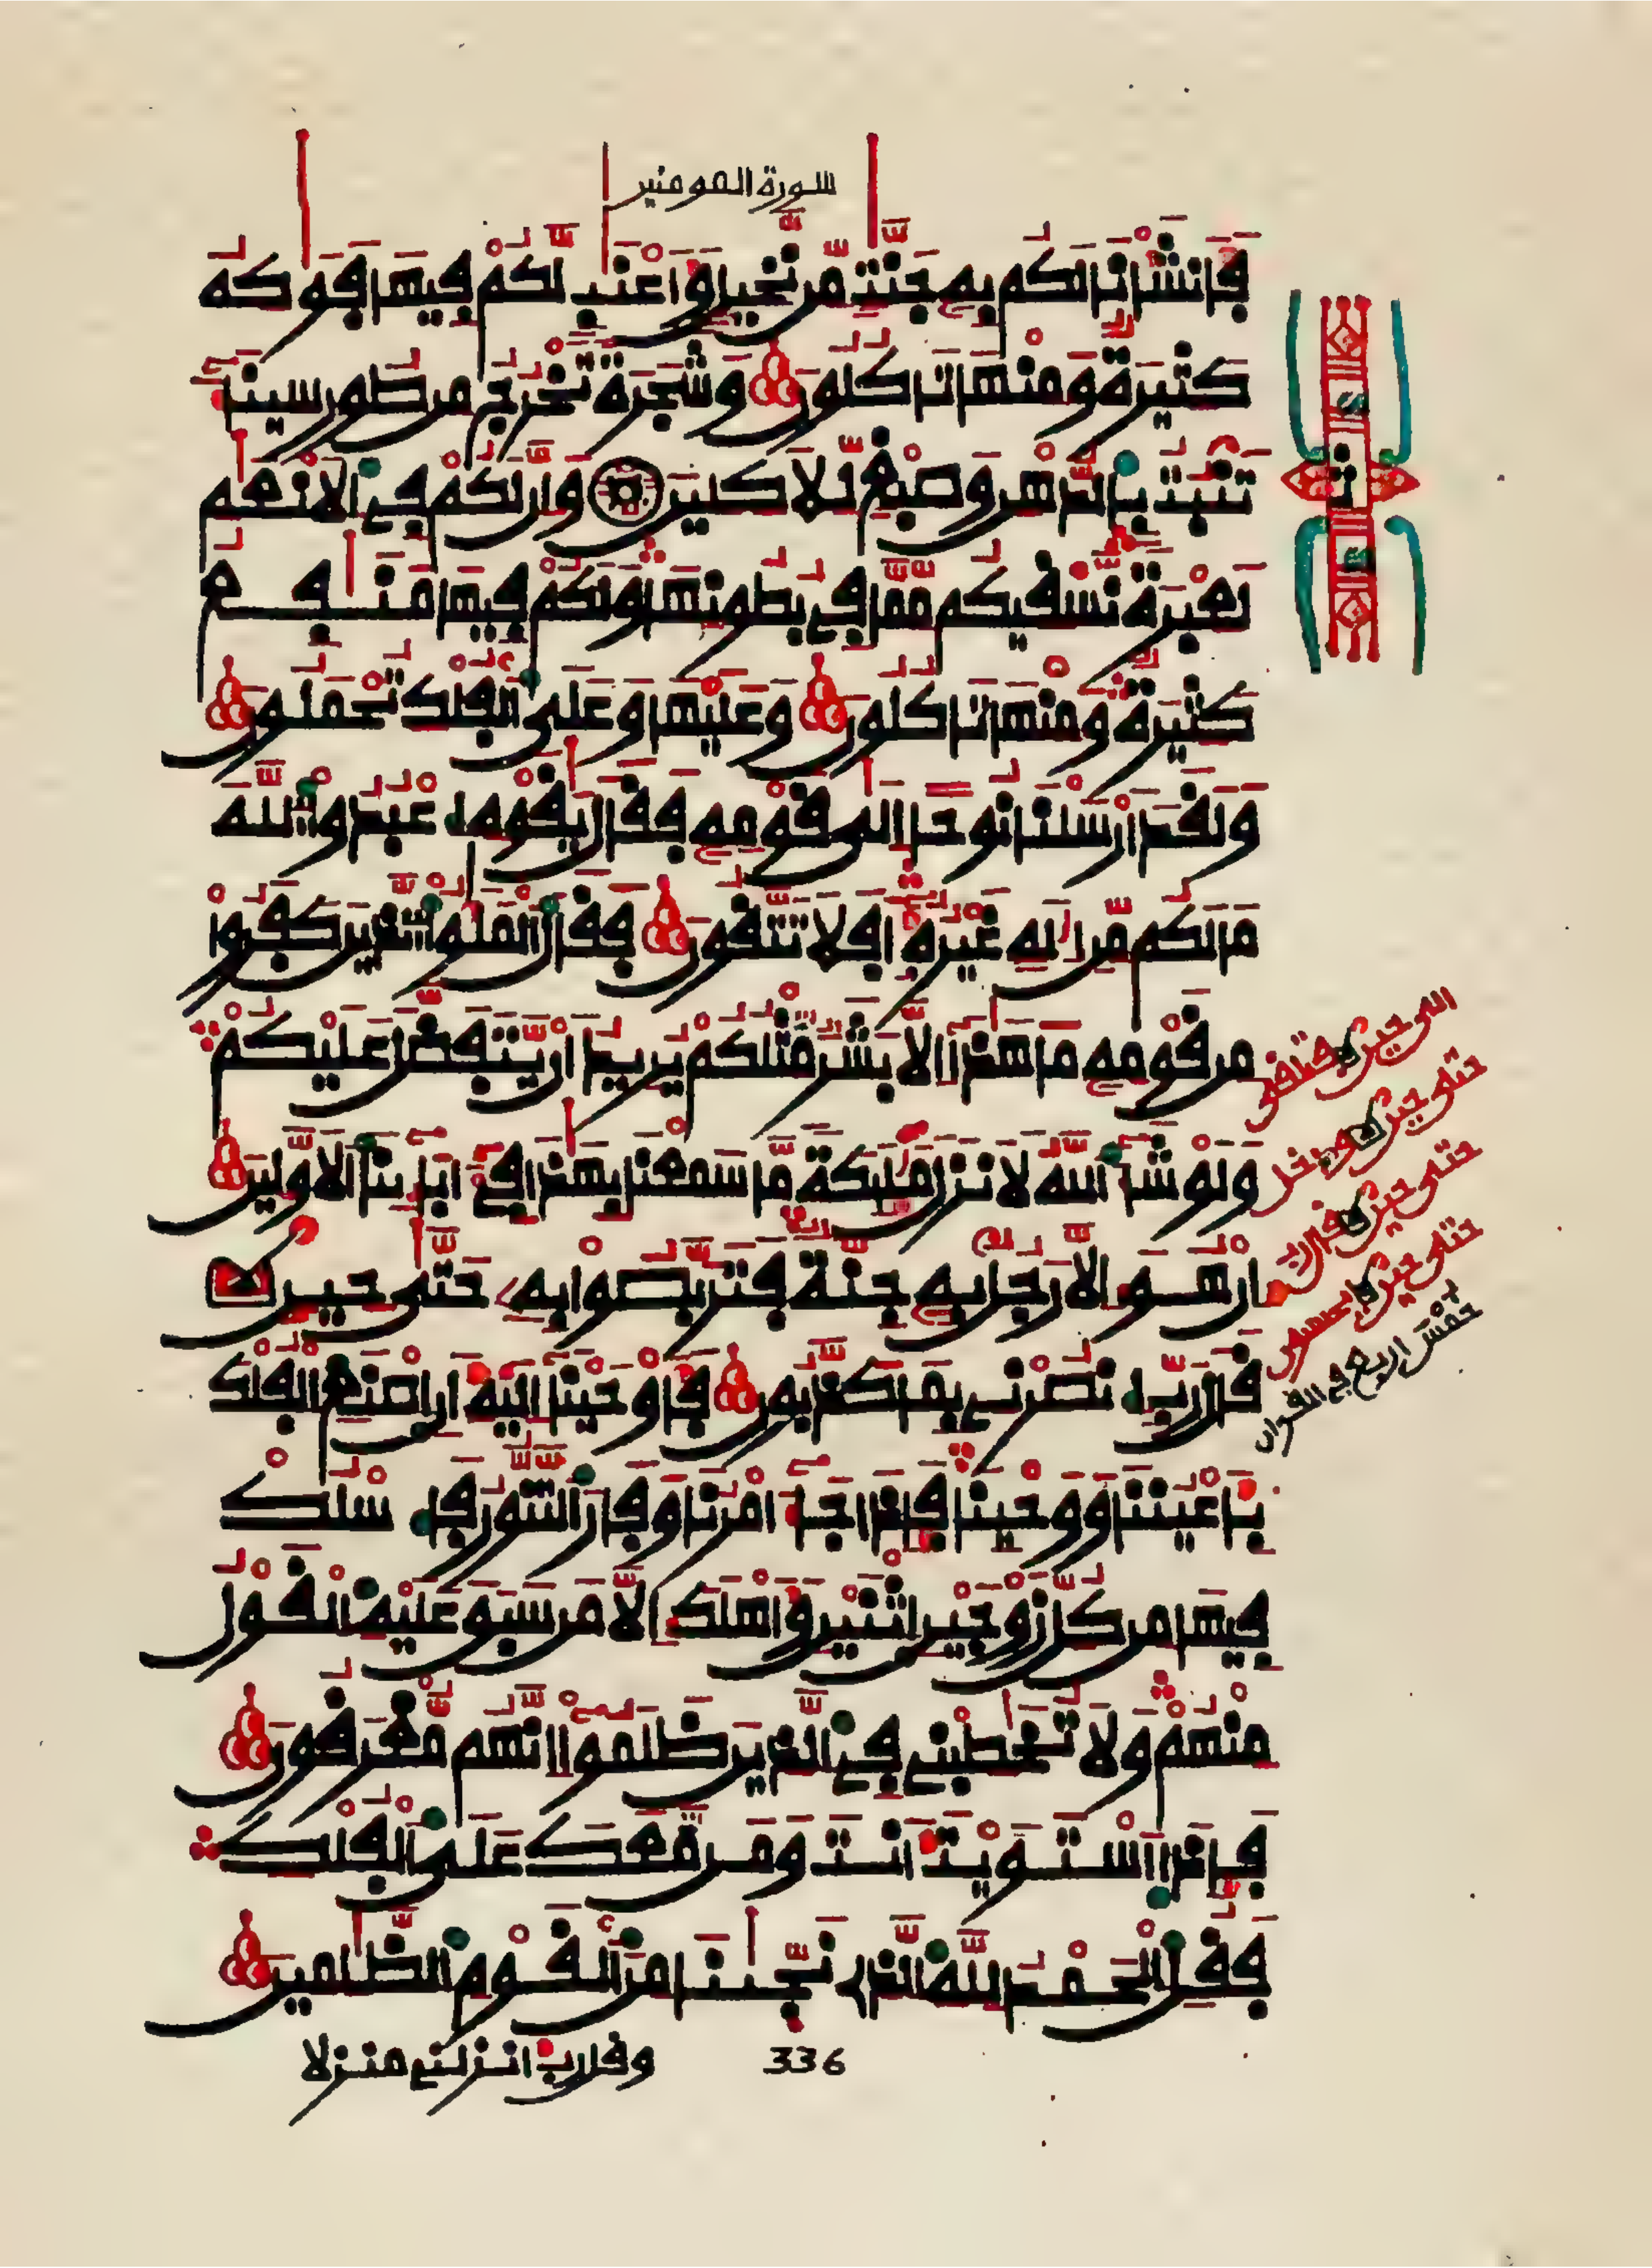 سورة المومنين
فَأَنشَأْنَا لَكُم بِهِ جَنَّتٍ مِّن نَّخِيلٍ وَأَعْنَبٍ لَّكُمْ فِيهَا فَوَكِهُ
كَثِيرَةٌ وَمِنْهَا تَاكُلُونَ وَشَجَرَةً تَخْرُجُ مِن طُورِ سِينَآءَ
تَنۢبُتُ بِالدُّهْنِ وَصِبْغٍ لِّلَاكِلِينَ وَإِنَّ لَكُمْ فِي الَانْعَمِ
لَعِبْرَةً نَّسْقِيكُم مِّمَّا فِي بُطُونِهَا وَلَكُمْ فِيهَا مَنَفِعُ
كَثِيرَةٌ وَمِنْهَا تَاكُلُونَ وَعَلَيْهَا وَعَلَى الْفُلْكِ تُحْمَلُونَ
وَلَقَدَ ارْسَلْنَا نُوحًا اِلَى قَوْمِهِ فَقَالَ يَقَوْمِ اعْبُدُوا اللَّهَ
مَا لَكُم مِّنِ اِلَهٍ غَيْرُهُ أَفَلَا تَتَّقُونَ فَقَالَ الْمَلَؤُا الَّذِينَ كَفَرُوا
مِن قَوْمِهِ مَا هَذَا إِلَّا بَشَرٌ مِّثْلُكُمْ يُرِيدُ أَن يَّتَفَضَّلَ عَلَيْكُمْ
وَلَوْ شَآءَ اللَّهُ لَأَنزَلَ مَلَئِكَةً مَّا سَمِعْنَا بِهَذَا فِي ءَابَآئِنَا الَاوَّلِينَ
إِنْ هُوَ إِلَّا رَجُلٌ بِهِ جِنَّةٌ فَتَرَبَّصُوا بِهِ حَتَّى حِينٍ
قَالَ رَبِّ انصُرْنِي بِمَا كَذَّبُونِ فَأَوْحَيْنَا إِلَيْهِ أَنِ اصْنَعِ الْفُلْكَ
بِأَعْيُنِنَا وَوَحْيِنَا فَإِذَا جَآءَ امْرُنَا وَفَارَ التَّنُّورُ فَاسْلُكْ
فِيهَا مِن كُلِّ زَوْجَيْنِ اثْنَيْنِ وَأَهْلَكَ إِلَّا مَن سَبَقَ عَلَيْهِ الْقَوْلُ
مِنْهُمْ وَلَا تُخَطِبْنِي فِي الَّذِينَ ظَلَمُوا إِنَّهُم مُّغْرَقُونَ
فَإِذَا اسْتَوَيْتَ أَنتَ وَمَن مَّعَكَ عَلَى الْفُلْكِ
فَقُلِ الْحَمْدُ لِلَّهِ الَّذِي نَجَّنَا مِنَ الْقَوْمِ الظَّلِمِينَ
وقل رب انزلني منزلا
336
حتى حين قال رب
خمس اربع في القران